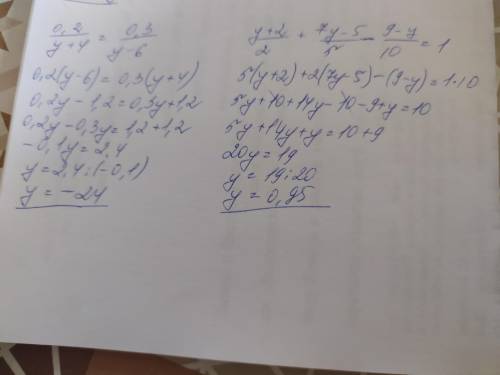 0,2/(y+4) = 0,3/(y-6)
0,2(y-6)=0,3(y+4)
0,2y-1,2=0,3y+1,2
0,2y-0,3y=1,2+1,2
-0,1y=2,4
y=2,4:(-0,1)
y=-24
(y+2)/2 + (7y-5)/5 - (9-y)/10 = 1
5(y+2)+2(7y-5)-(9-y)=1·10
5y+10+14y-10-9+y=10
5y+14y+y=10+9
20y=19
y=19:20
y=0,95